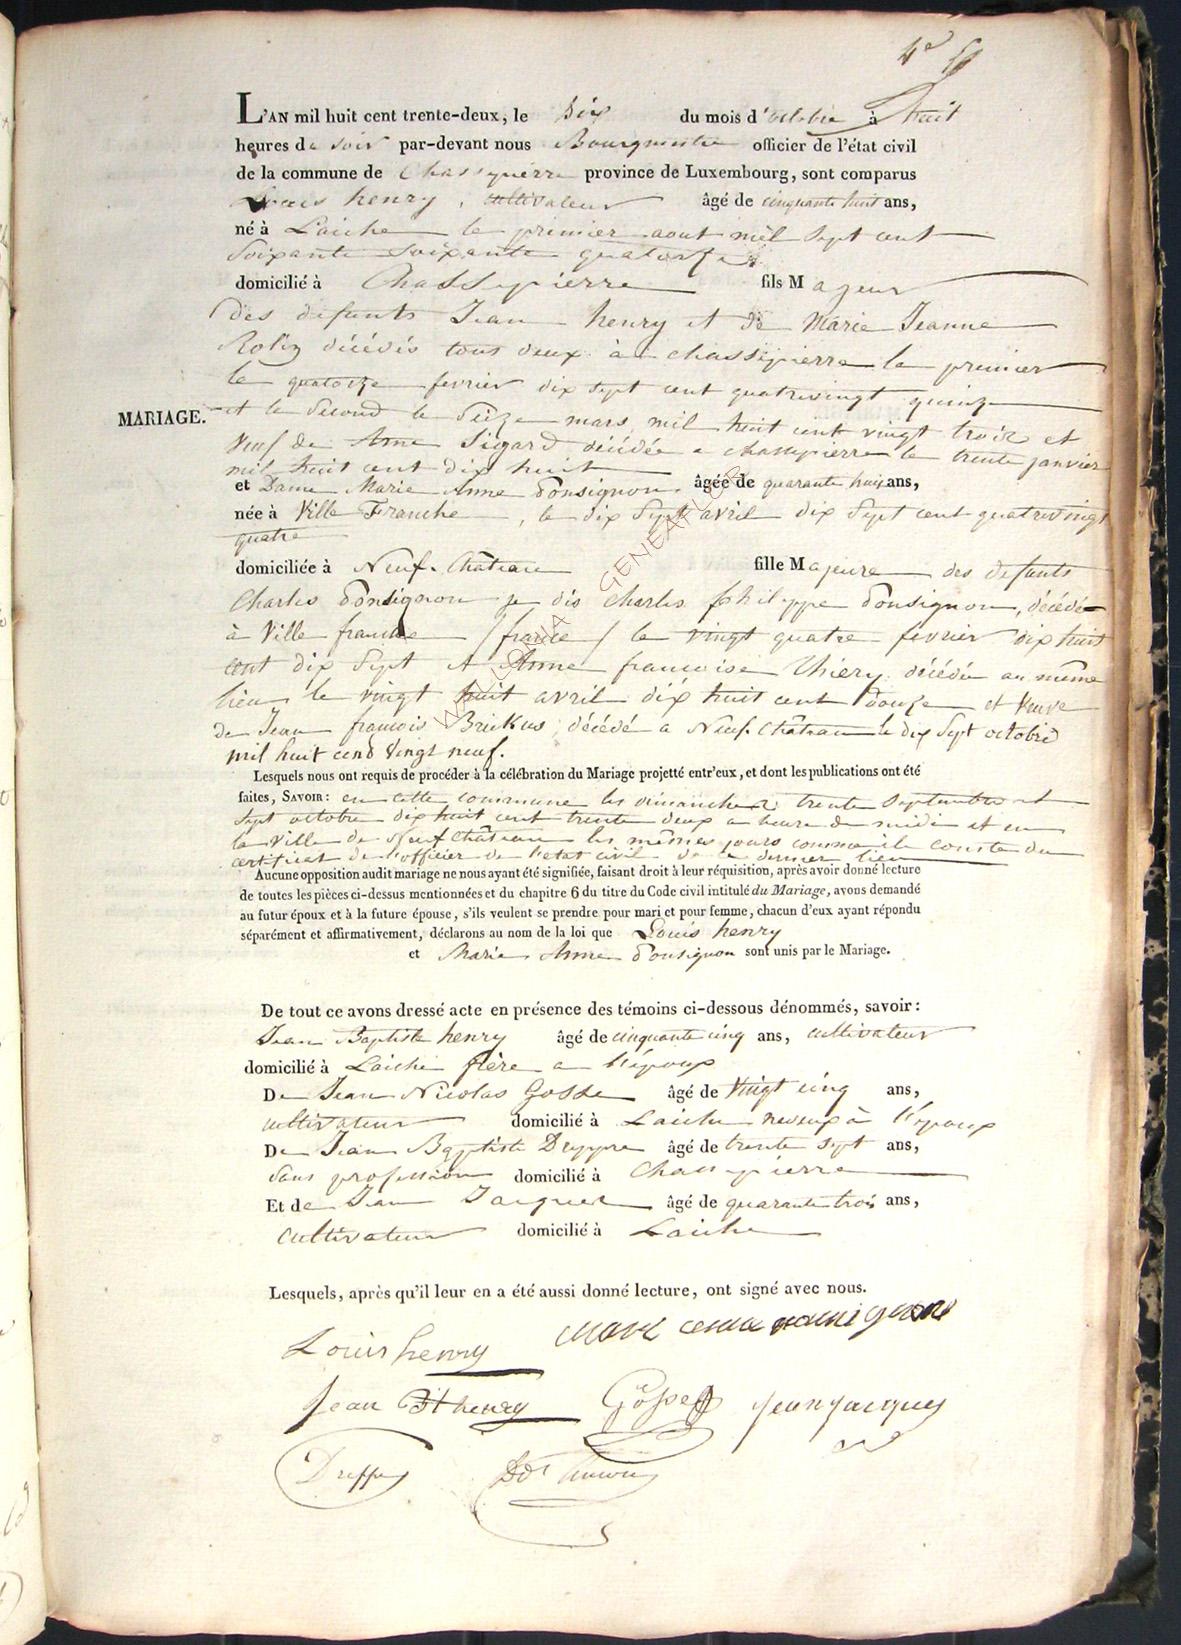 4e
L'AN mil huit cent trente-deux, le Dix du mois d'octobre à huit
heures du soir par-devant nous Bourgmestre officier de l'état civil
de la commune de Chassepierre province de Luxembourg, sont comparus
Louis henry, cultivateur âgé de cinquante huit ans,
né à Laiche le premier aout mil sept cent
soixante soixante quatorze
domicilié à Chassepierre fils Majeur
des défunts Jean henry et de Marie Jeanne
décédés tous deux à chassepierre le premier
le quatorze fevrier dix sept cent quatrevingt quinze
MARIAGE. et le Second le Seize mars mil huit cent vingt trois et
Veuf de Anne Sigard décédée a chassepierre le trente janvier
mil huit cent dix huit
et Dame Marie Anne Ponsignon, âgée de quarante huit ans,
née à Ville Franche, le dix Sept avril dix Sept cent quatrevingt
quatre
domiciliée à Neuf-Château fille Majeure des defunts
Charles Ponsignon je dis Charles philippe Ponsignon, décédé
à Ville franche / france / le vingt quatre fevrier dix huit
cent dix Sept et Anne francoise Thiery décédée au même
lieu le vingt huit avril dix huit cent douze et Veuve
de Jean francois décédé a Neuf-Château le dix Sept octobre
mil huit cend Vingt neuf.
Lesquels nous ont requis de procéder à la célébration du Mariage projetté entr'eux, et dont les publications ont été
faites, SAVOIR: en cette commune les dimanches trente Septembre et
Sept octobre dix huit cent trente deux a heure de midi et en
la Ville de Neufchâteau les mêmes jours comme il conste du
certificat de l'officier de l'etat civil de ce dernier lieu
Aucune opposition audit mariage ne nous ayant été signifiée, faisant droit à leur réquisition, après avoir donné lecture
de toutes les pièces ci-dessus mentionnées et du chapitre 6 du titre du Code civil intitulé du Mariage, avons demandé
au futur époux et à la future épouse, s'ils veulent se prendre pour mari et pour femme, chacun d'eux ayant répondu
séparément et affirmativement, déclarons au nom de la loi que Louis henry
et Marie Anne Ponsignon sont unis par le Mariage.
De tout ce avons dressé acte en présence des témoins ci-dessous dénommés, savoir:
Jean Baptiste henry âgé de cinquante cinq ans, cultivateur
domicilié à Laiche frère a l'époux
De Jean Nicolas Gosse âgé de Vingt cinq ans,
cultivateur domicilié à Laiche neveux à l'epoux
De Jean Baptiste Dreppe âgé de trente sept ans,
Sans profession domicilié à Chassepierre
Et de Jean Jacques âgé de quarante trois ans,
cultivateur domicilié à Laiche
Lesquels, après qu'il leur en a été aussi donné lecture, ont signé avec nous.
Louis henry
Jean Bt henry Gosse jean jacques
WALLONIA GENEATLOR